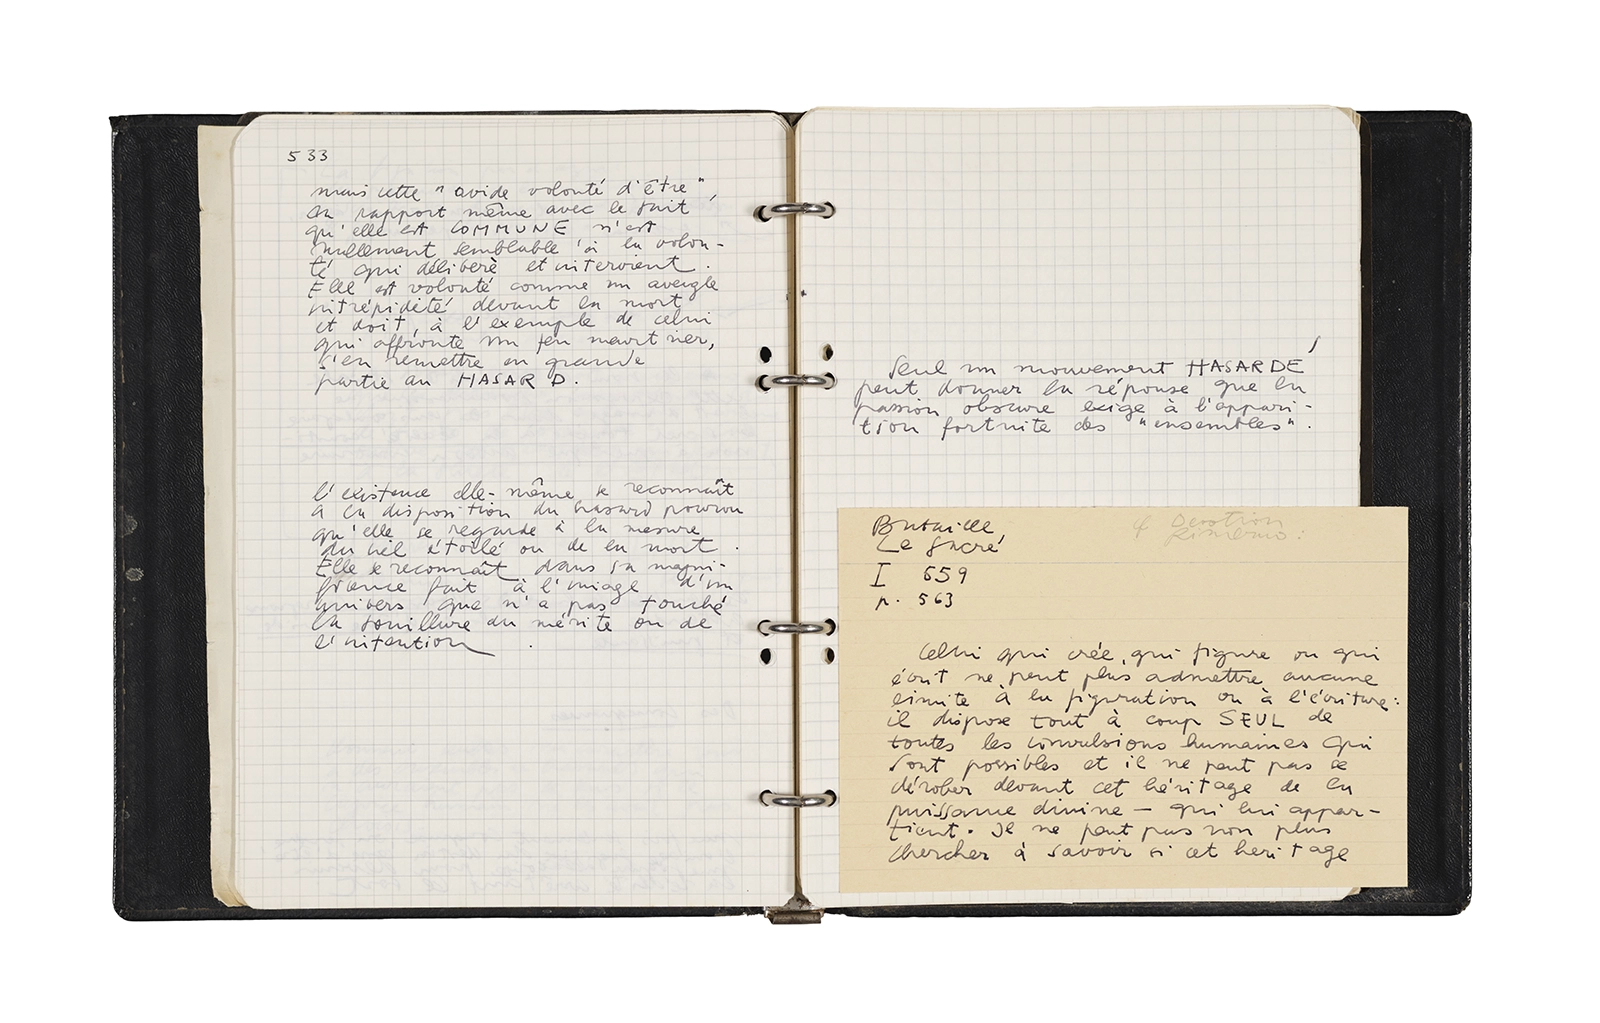 533
mais cette "avide volonté d'être",
en rapport même avec le fait
qu'elle est COMMUNE n'est
nullement semblable à la volon-
té qui délibère et intervient.
Elle est volonté comme un aveugle
intrépidité devant la mort
et doit, à l'exemple de celui
qui affronte un feu meurtrier,
s'en remettre en grande
partie au HASARD.
l'existence elle-même se reconnaît
à la disposition du hasard pourvu
qu'elle se regarde à la mesure
du ciel étoilé ou de la mort.
Elle se reconnaît dans sa magni-
ficence fait à l'image d'un
univers que n'a pas touché
la souillure du mérite ou de
l'intention.
Seul un mouvement HASARDÉ
peut donner la réponse que la
passion obscure exige à l'appari-
tion fortuite des "ensembles".
Bataille
Le Sacré
I 659
p. 563
Celui qui crée, qui figure ou qui
écrit ne peut plus admettre aucune
limite à la figuration ou à l'écriture:
il dispose tout à coup SEUL de
toutes les convulsions humaines qui
sont possibles et il ne peut pas se
dérober devant cet héritage de la
puissance divine — qui lui appar-
tient. Il ne peut pas non plus
chercher à savoir si cet heritage